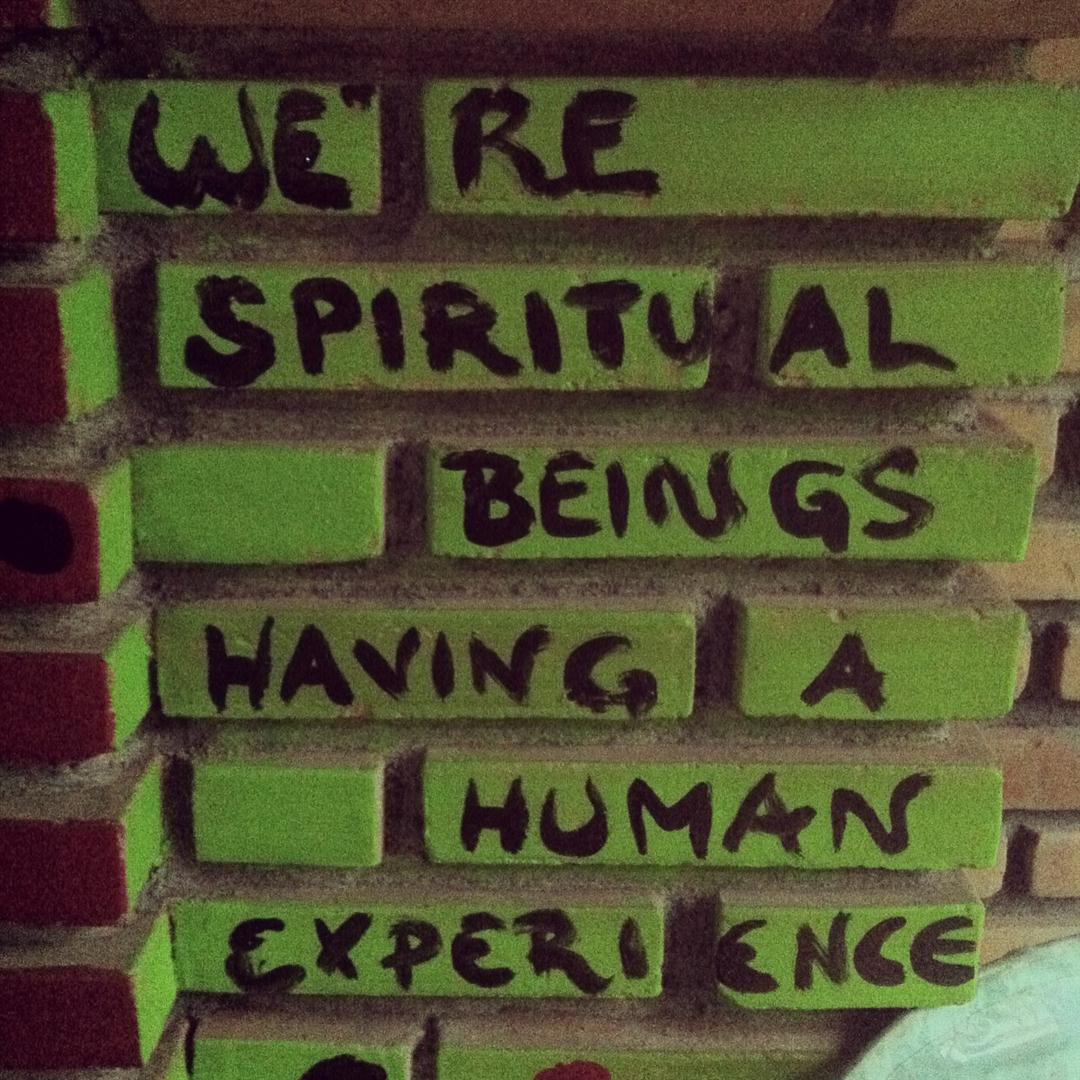 WE'RE
SPIRITUAL
BEINGS
HAVING A
HUMAN
EXPERIENCE